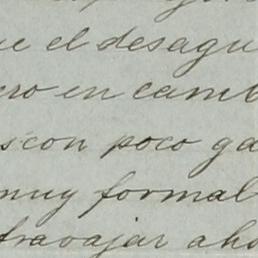 ue el desagu
ero en camb
s con poco ga
muy formal
travajar aho